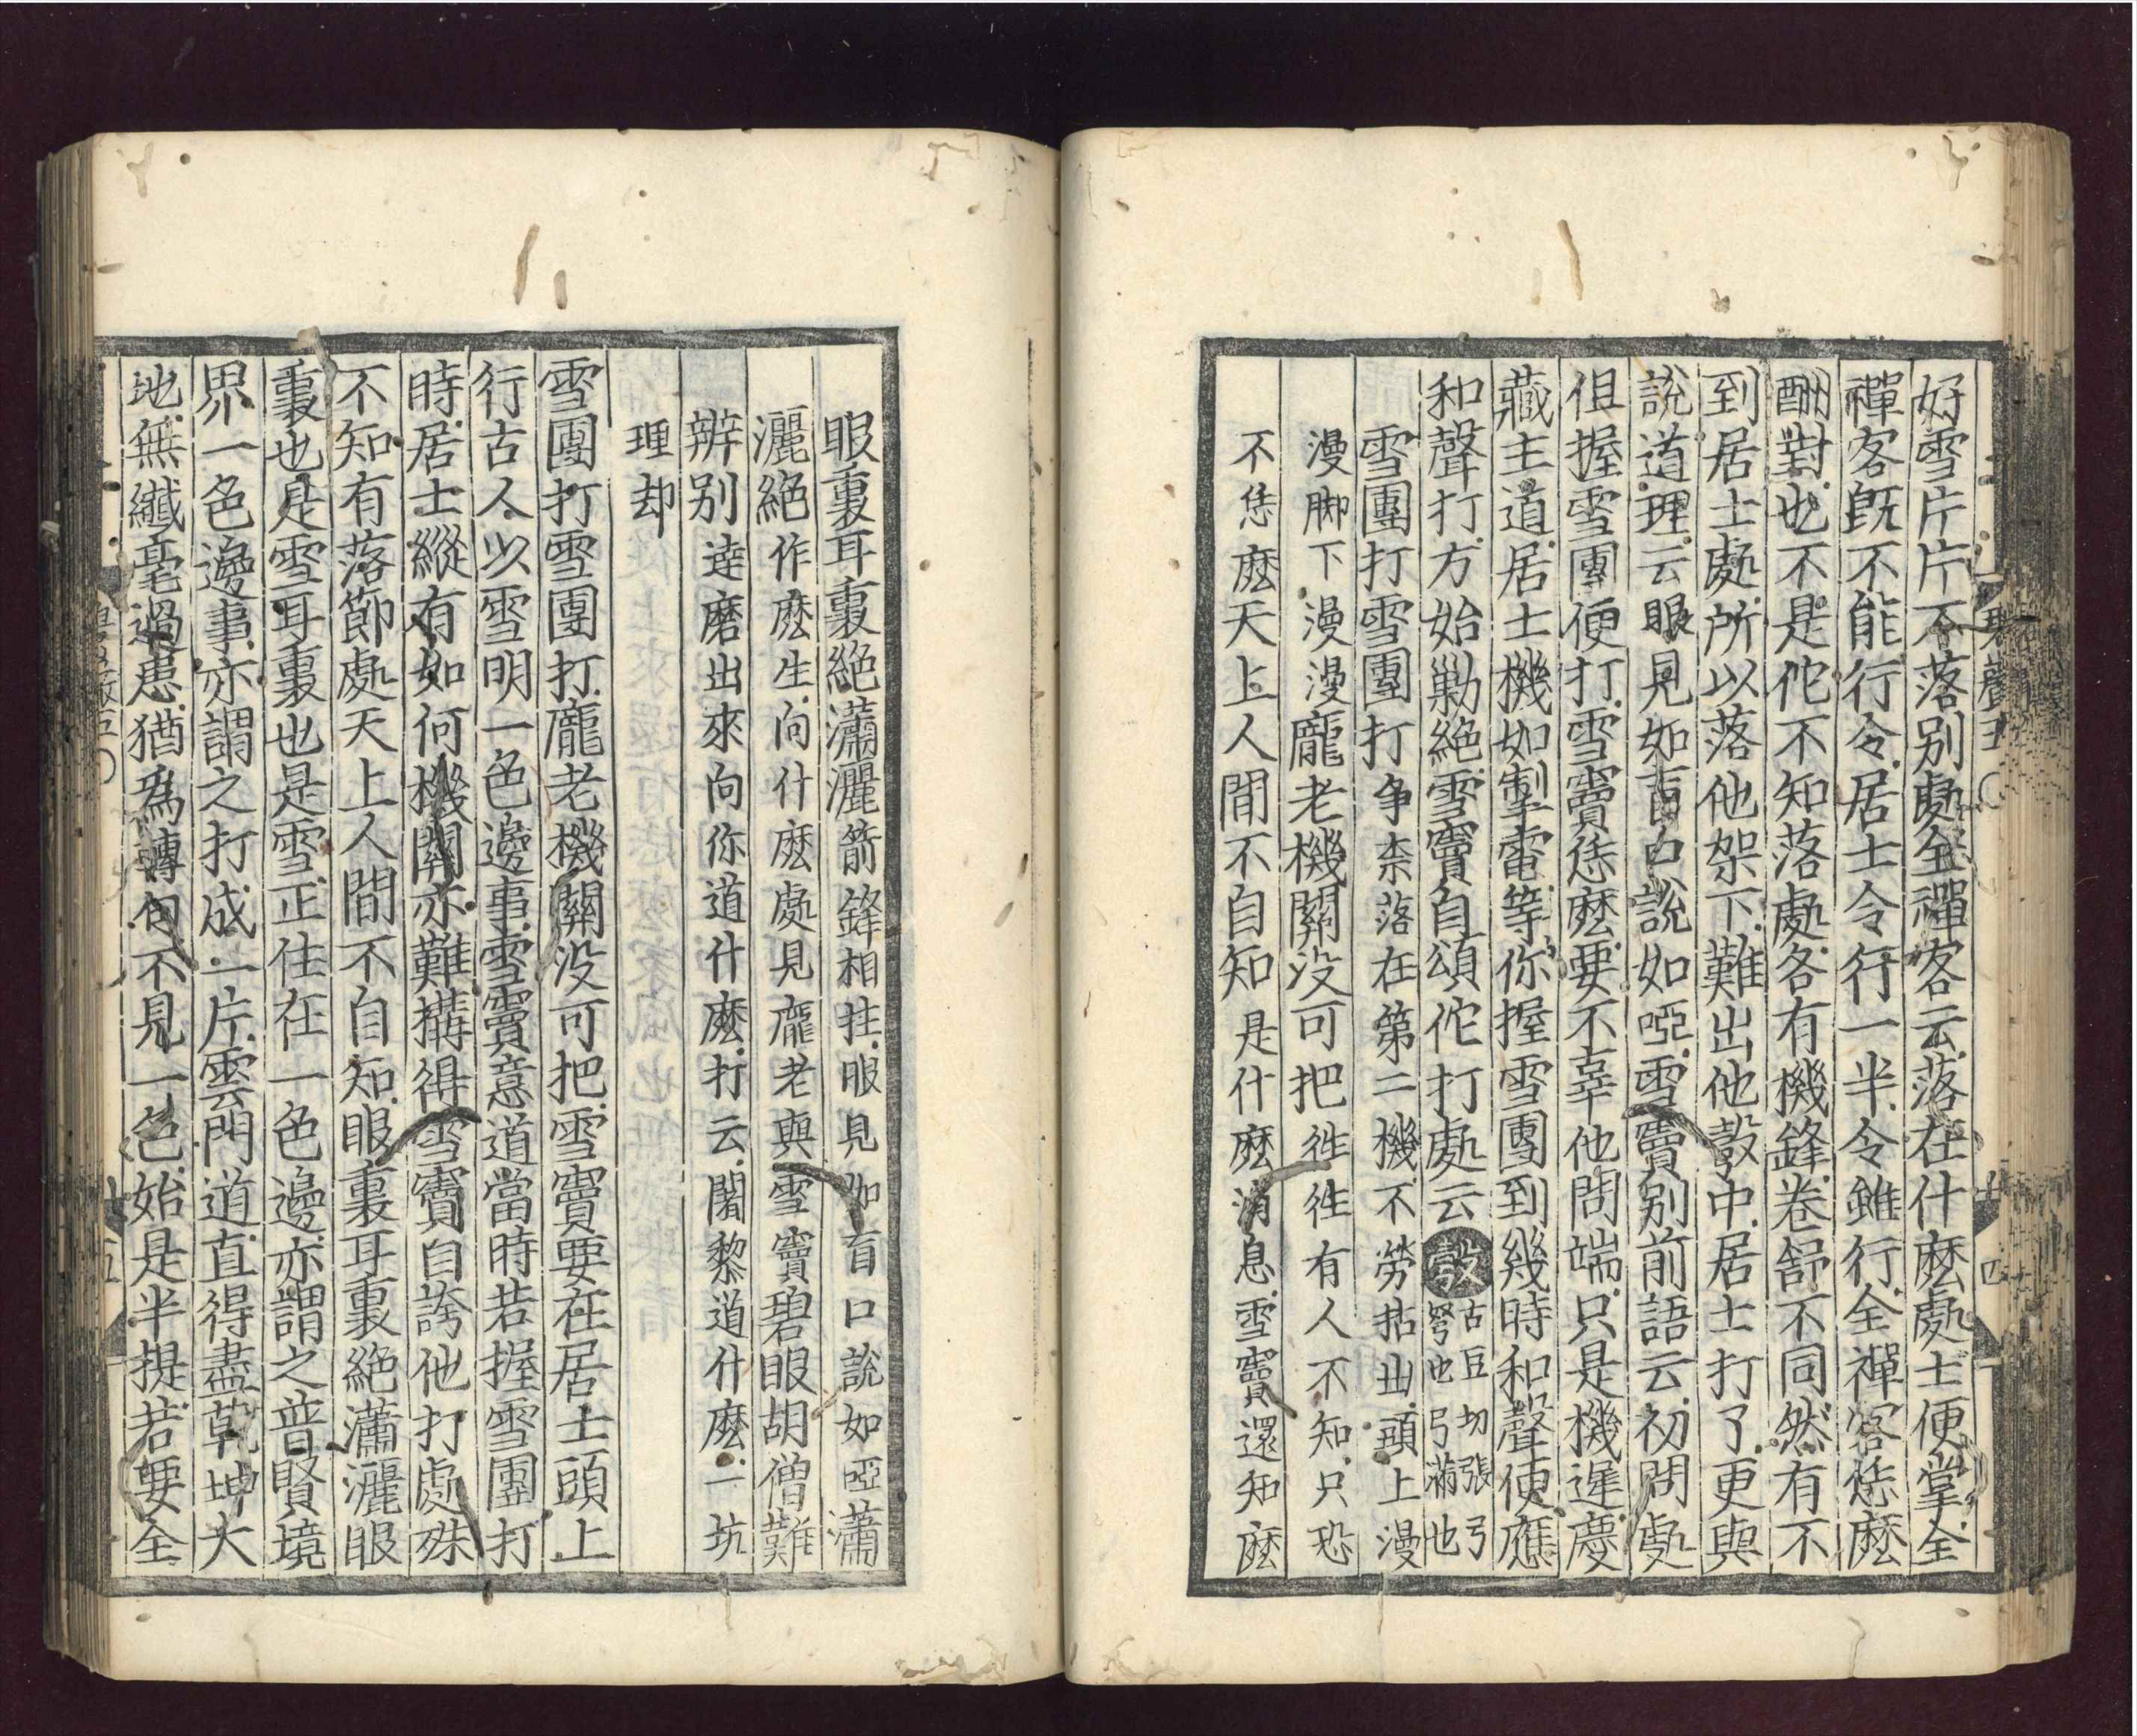 好雪片片不落別處全禪客云落在什麽處士便掌全
禪客旣不能行令居士令行一半令雖行全禪客恁麽
酬對也不是佗不知落處各有機鋒卷舒不同然有不
到居士處所以落他架下難出他彀中居士打了更與
說道理云眼見如盲口說如啞雪竇別前語云初問處
但握雪團便打雪竇恁麽要不辜他問端只是機遲慶
藏主道居士機如掣電等你握雪團到幾時和聲便應
和聲打方始勦絕雪竇自頌佗打處云彀古巨切張弓弩也弓滿也
雪團打雪團打争柰落在第二機不勞拈出頭上漫
漫脚下漫漫龐老機關没可把徃徃有人不知只恐
不恁麽天上人間不自知是什麽消息雪竇還知麽
眼裏耳裏絕瀟灑箭鋒相拄眼見如盲口說如啞瀟
灑絕作麽生向什麽處見龐老與雪竇碧眼胡僧難
辨別達磨出來向你道什麽打云闍黎道什麽一坑
埋却
雪團打雪團打龐老機關没可把雪竇要在居士頭上
行古人以雪明一色邊事雪竇意道當時若握雪團打
時居士縱有如何機關亦難搆得雪竇自誇他打處殊
不知有落節處天上人間不自知眼裏耳裏絕瀟灑眼
裏也是雪耳裏也是雪正住在一色邊亦謂之普賢境
界一色邊事亦謂之打成一片雲門道直得盡乾坤大
地無纖毫過患猶爲轉句不見一色始是半提若要全